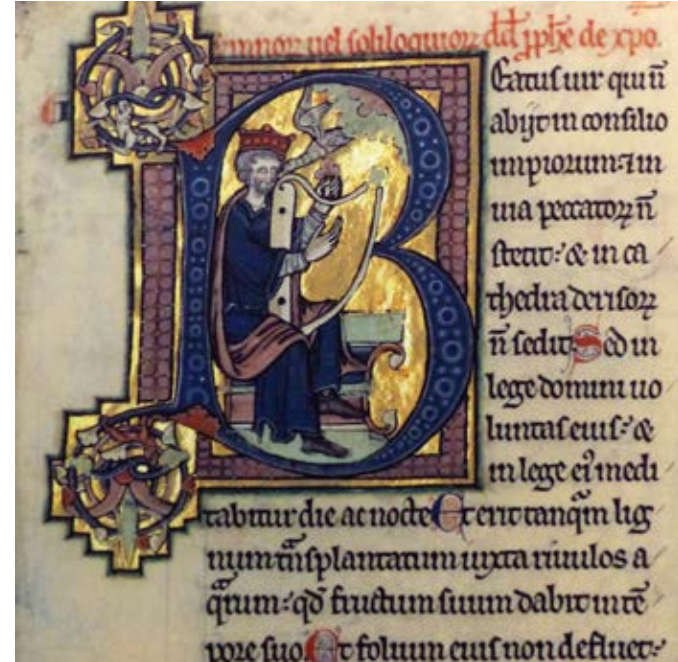 uel soliloquiorꝝ dd̄ ꝓph̄e de xp̄o.
B
Eatus uir qui n̄
abijt in consilio
impiorum ⁊ in
uia peccatoꝝ n̄
stetit: & in ca
thedra derisoꝝ
n̄ sedit Sed in
lege domini uo
luntas eius: &
in lege ei᷒ medi
tabitur die ac nocte Et erit tanqᷓm lig
num tᷓnsplantatum iuxta riuulos a
qᷓrum: qd̄ fructum suum dabit in tē
pore suo. Et folium eius non defluet: